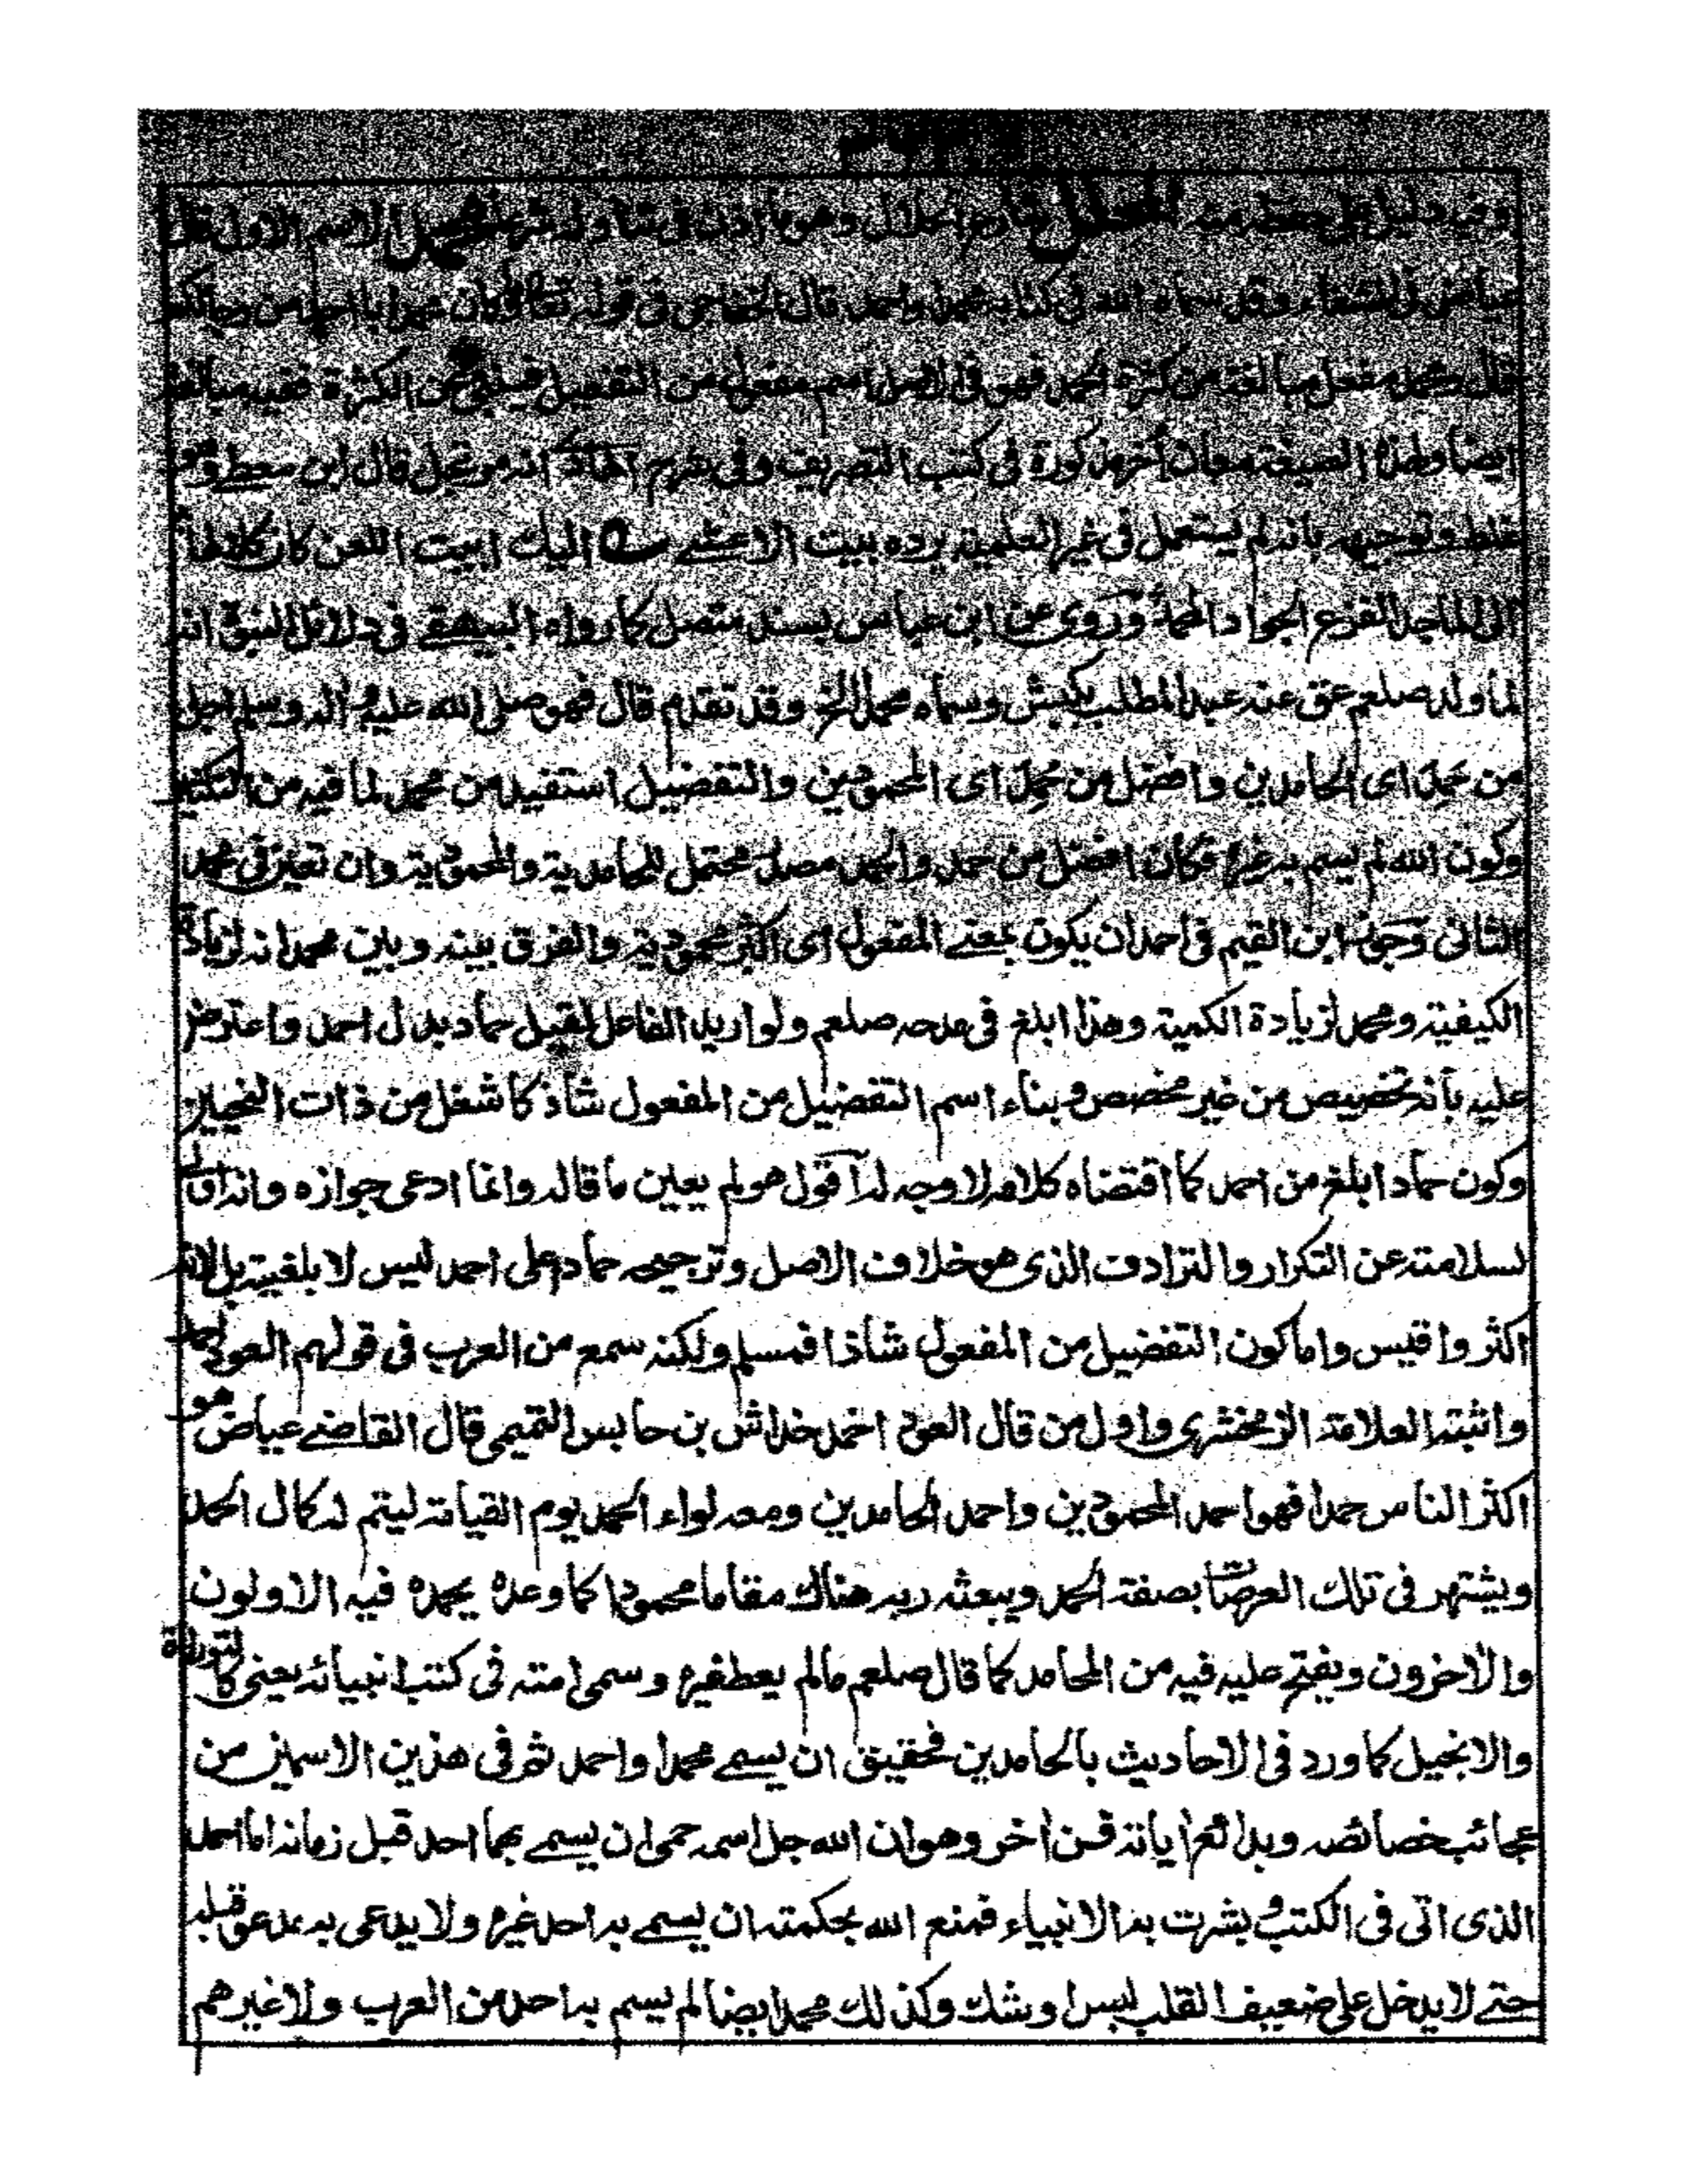 وفيه دليل على الحلال وهو ما اذن في تناوله شرعا محمد الاسم الاول قال
عياض في الشفاء وقد سماه الله في كتابه محمدا واحمد قال الخفاجي في قوله تعالى ما كان محمد ابا احد من رجالكم
قال محمد مفعل مبالغة من كثرة الحمد فهو في الاصل اسم مفعول من التفعيل الكثرة ففيه مبالغة
ايضا ولهذا الصيغة معان أخر مذكورة في كتب التصريف وفي شرح انه مرتجل قال ابن معط وهو
غلط وتوجيهه بانه لم يستعمل في غير العلمية يرده بيت الاعشى اليك ابيت اللعن كان كلالها
الى الماجد الفرع الجواد المحمد وروى عن ابن عباس بسند متصل كما رواه البيهقى فى دلائل النبوة انه
لما ولد صلعم عق عنه عبد المطلب بكبش وسماه محمدا الخ وقد تقدم قال فهو صلى الله عليه واله وسلم اجل
من حَمِدَ اى الحامدين وافضل من حُمِدَ اى المحمودين والتفضيل استفيد من محمد لما فيه من التكثير
وكون الله لم يسم به غيره فكان افضل من حمد والحمد مصدر محتمل للحامدية والمحمودية وان تعين في محمد
الثانى وجوز ابن القيم فى احمد ان يكون بمعنے المفعول اى اكثر محمودية والفرق بينه وبين محمد انه لزيادة
الكيفية ومحمد لزيادة الكمية وهذا ابلغ فى مدحه صلعم ولو اريد الفاعل لقيل حماد بدل احمد واعترض
عليه بأنه تخصيص من غير مخصص وبناء اسم التفضيل من المفعول شاذ كاشغل من ذات النحيين
وكون حماد ابلغ من احمد كما اقتضاه كلامه لا وجه له أقول هو لم يعين ما قاله وانما ادعى جوازه وانه اولى
لسلامته عن التكرار والترادف الذى هو خلاف الاصل وترجيحه حماد على احمد ليس لا بلغيته بل لانه
اكثر واقيس واما كون التفضيل من المفعول شاذا فمسلم ولكنه سمع من العرب فى قولهم العود احمد
واثبته العلامة الزمخشرى واول من قال العود احمد خداش بن حابس التميمى قال القاضے عياض هو
اكثر الناس حمدا فهو احمد المحمودين واحمد الحامدين ومعه لواء الحمد يوم القيامة ليتم له كمال الحمد
ويشتهر فى تلك العرصات بصفة الحمد ويبعثه ربه هناك مقاما محمودا كما وعده يحمده فيه الاولون
والاخرون ويفتح عليه فيه من المحامد كما قال صلعم مالم يعط غيره وسمى امته فى كتب انبيائه يعنى كالتوراة
والانجيل كما ورد فى الاحاديث بالحامدين فحقيق ان يسمے محمدا واحمد ثم فى هذين الاسمين من
عجائب خصائصه وبدائع اياته فن أخر وهو ان الله جل اسمه حمى ان يسمے بهما احد قبل زمانه اما احمد
الذى اتى فى الكتب وبشرت به الانبياء فمنع الله بحكمته ان يسمے به احد غيره ولا يدعى به مدعو قبله
حتے لا يدخل على ضعيف القلب لبس او شك وكذلك محمد ايضا لم يسم به احد من العرب ولا غيرهم